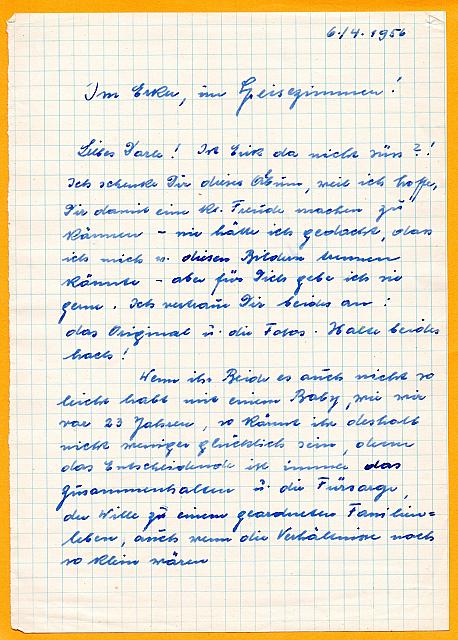 6./4. 1956
Im Erker, im Speisezimmer!
Liebes Karle! Ist Erik da nicht süss?!
Ich schenke Dir dieses Album, weil ich hoffe,
Dir damit eine kl. Freude machen zu
können – nie hätte ich gedacht, dass
ich mich v. diesen Bildern trennen
könnte – aber für Dich gebe ich sie
gerne. Ich vertraue Dir beides an:
das Original u. die Fotos. Halte beides
hoch!
Wenn ihr Beide es auch nicht so
leicht habt mit einem Baby, wie wir
vor 23 Jahren, so könnt ihr deshalb
nicht weniger glücklich sein, denn
das Entscheidende ist immer das
Zusammenhalten u. die Fürsorge,
der Wille zu einem geordneten Familien=
leben, auch wenn die Verhältnisse noch
so klein wären